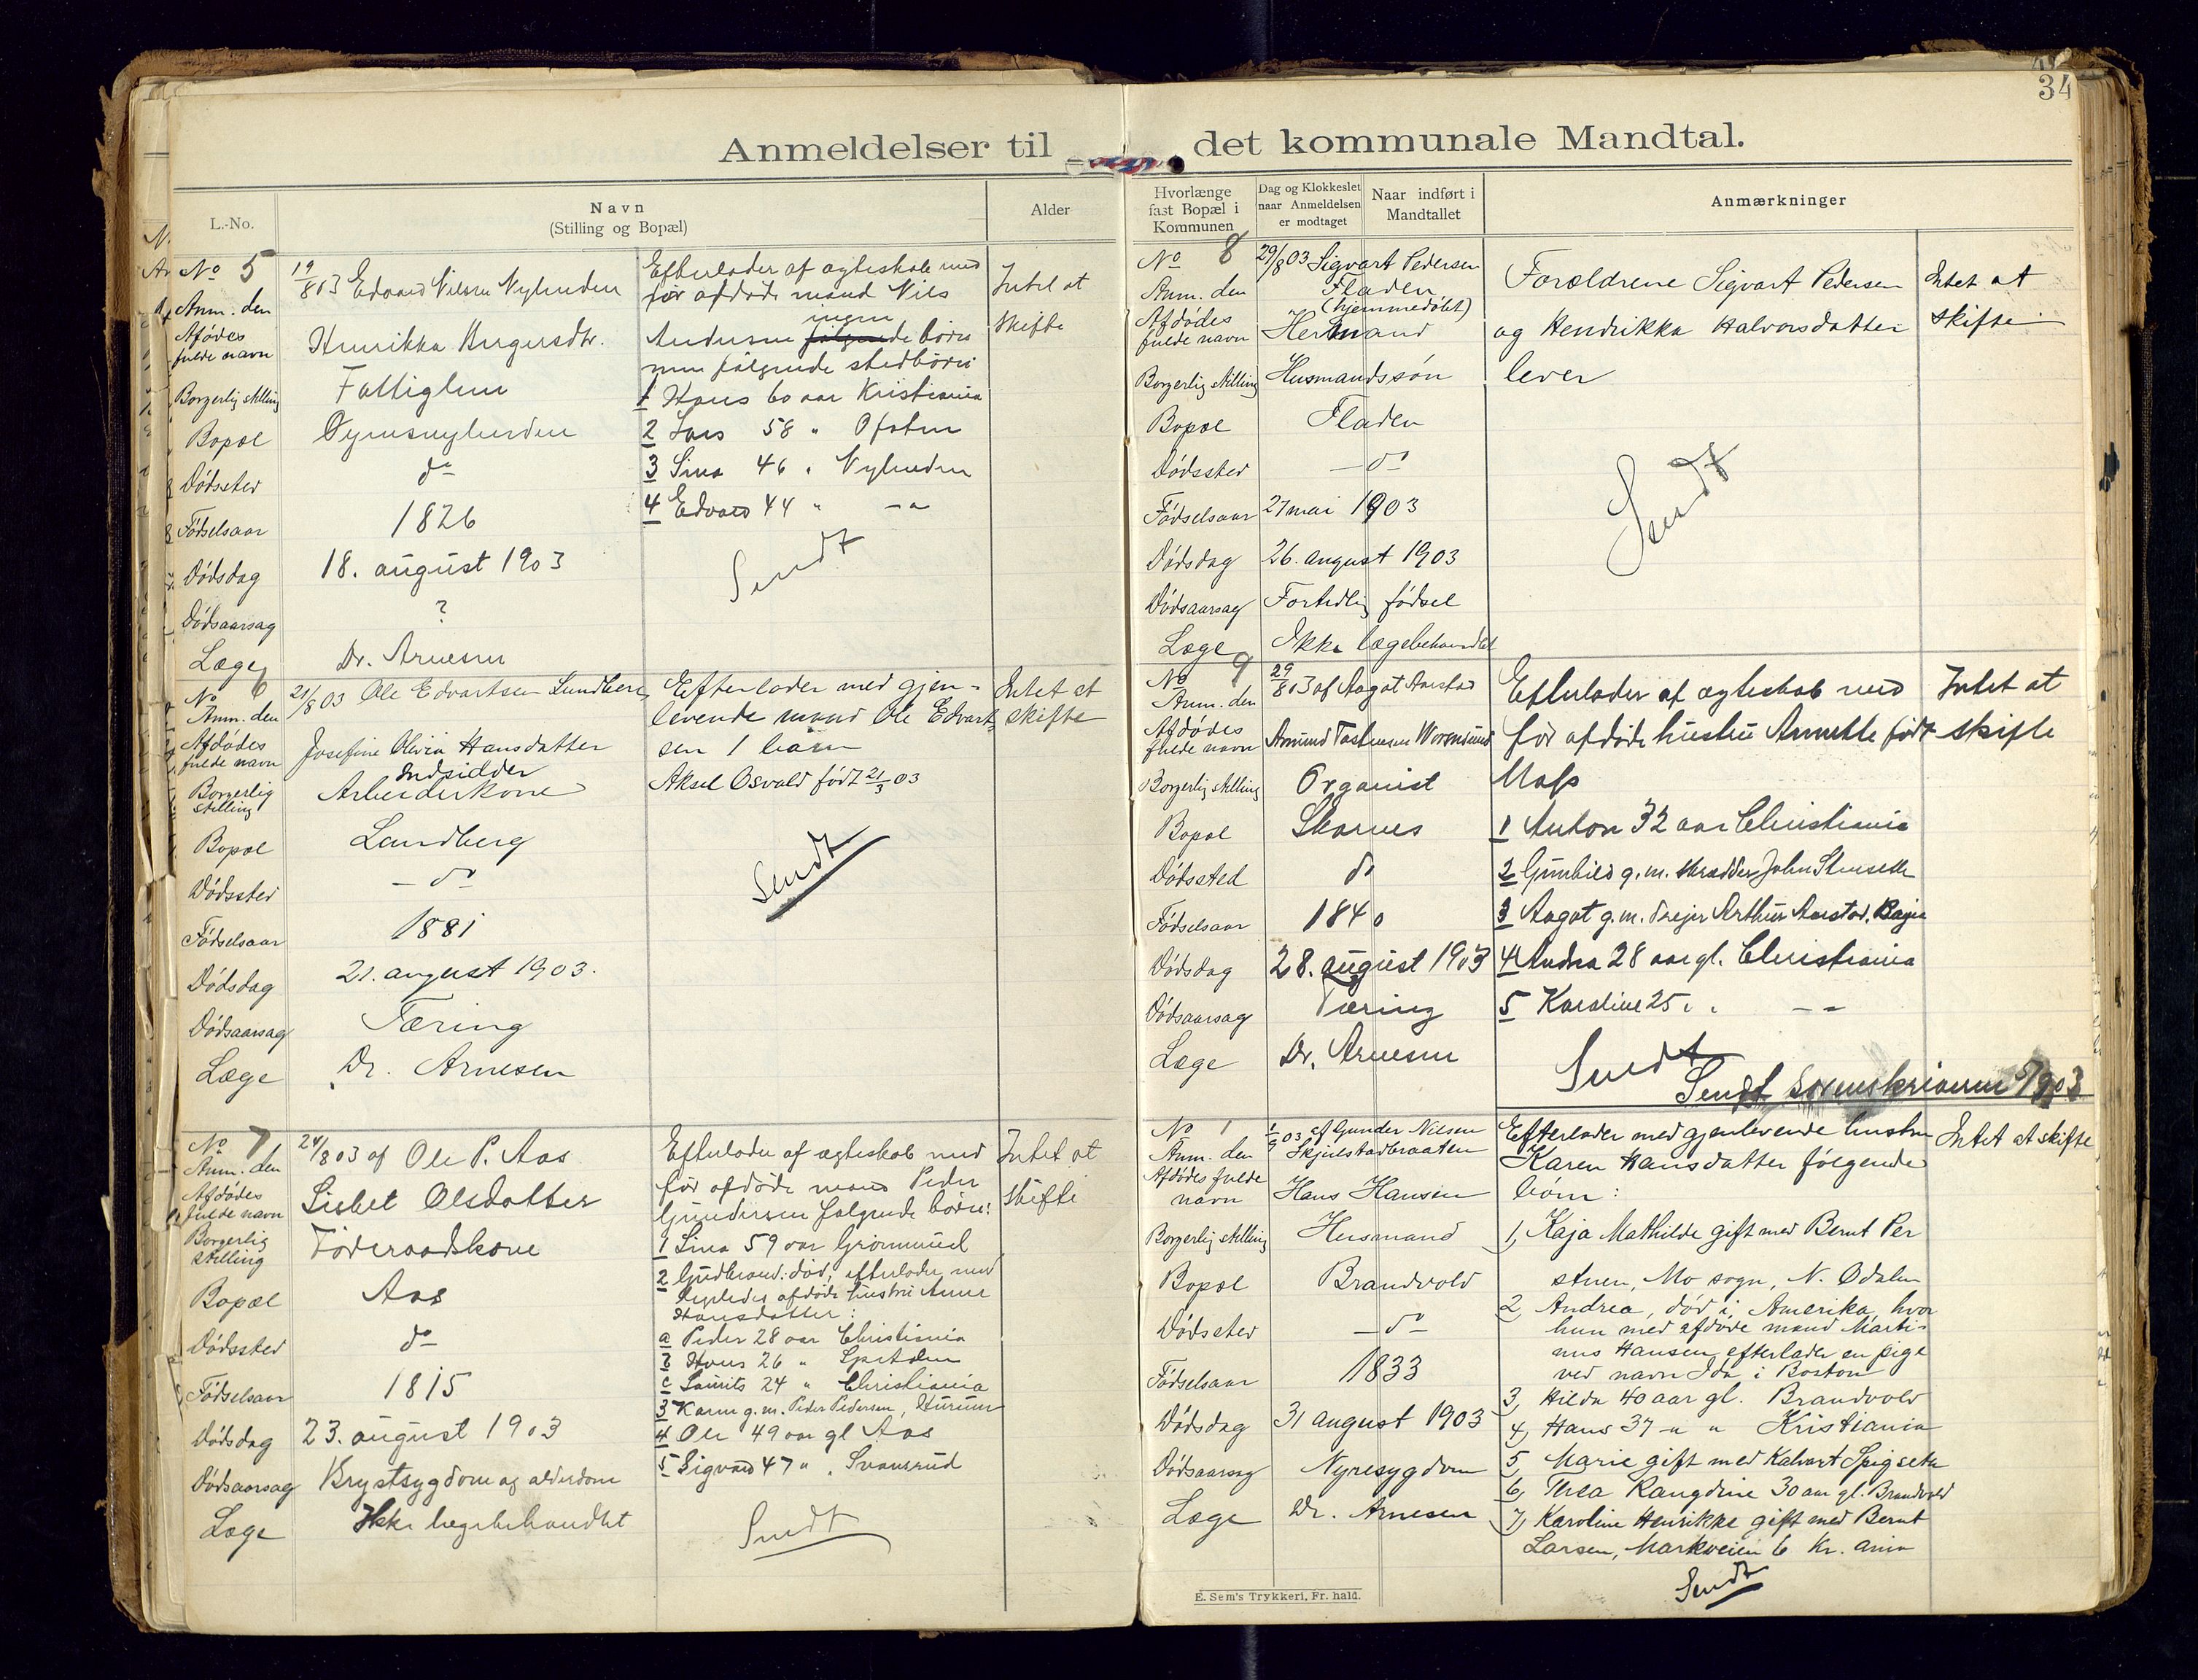 34
Anmeldelser til det kommunale Mandtal.
L.-No.
Navn
(Stilling og Bopæl)
Alder
No 5
Anm. den 19/8 03 Edvard Nilsen Nylenden
Afdødes fulde navn Henrikka
Borgerlig stilling Fattiglem
Bopæl
Dødssted do
Fødselsaar 1826
Dødsdag 18. august 1903
Dødsaarsag ?
Læge Dr. Arnesen
Efterlader af ægteskab med
før afdøde mand Nils
ingen
Andersen følgende børn
men følgende stedbørn
1 Hans 60 aar Kristiania
2 Lars 58 "
3 Sina 46 " Nylenden
4 Edvard 44 " -"-
Sendt
Intet at
skifte
No 6
Anm. den 21/8 03 Ole Edvartsen Lundberg
Afdødes fulde navn Josefine Olivia Hansdatter
Indsidder
Borgerlig stilling Arbeiderkone
Bopæl Lundberg
Dødssted - do -
Fødselsaar 1881
Dødsdag 21. august 1903.
Dødsaarsag Tæring
Læge Dr. Arnesen
Efterlader med gjen-
levende mand Ole Edvart-
sen 1 barn
Aksel Osvald født 21/3 03
Sendt
Intet at
skifte
No 7
Anm. den 24/8 03 af Ole P. Aas
Afdødes fulde navn Lisbet Olsdatter
Borgerlig stilling Føderaadskone
Bopæl Aas
Dødssted do
Fødselsaar 1815
Dødsdag 23. august 1903
Dødsaarsag Brystsygdom og alderdom
Læge Ikke lægebehandlet
Efterlader af ægteskab med
før afdøde mand Peder
Gundersen følgende børn:
1 Lina 59 aar Grønnerud
2 Gudbrand: død, efterlader med
ligeledes afdøde hustru Anne
Hansdatter:
a Peder 28 aar Christiania
b Hans 26 "
c Laurits 24 " Christiania
3 Karen g. m. Peder Pedersen, Hurum
4 Ole 49 aar gl Aas
5 Sigvard 47 " " Svensrud
Sendt
Intet at
skifte
Hvorlænge
fast Bopæl i
Kommunen
Dag og Klokkeslet
naar Anmeldelsen
er modtaget
Naar indført i
Mandtallet
Anmærkninger
No 8
Anm. den 29/8 03 Sigvart Pedersen
Fladen
(hjemmedøbt)
Afdødes fulde navn Hermand
Borgerlig stilling Husmandssøn
Bopæl Fladen
Dødssted - do
Fødselsaar 27 mai 1903
Dødsdag 26. august 1903
Dødsaarsag Fortidlig fødsel
Læge Ikke lægebehandlet
Forældrene Sigvart Pedersen
og Hendrikka Halvorsdatter
lever
Sendt
Intet at
skifte
No 9
Anm. den 29/8 03 af Aagot Aarstad
Afdødes fulde navn Amund Tostensen
Borgerlig stilling Organist
Bopæl Skarnes
Dødssted do
Fødselsaar 1840
Dødsdag 28. august 1903
Dødsaarsag Tæring
Læge Dr. Arnesen
Efterlader af ægteskab med
før afdøde hustru Annette født
Moss
1 Anton 32 aar Christiania
2 Gunhild g. m. skrædder John
3 Aagot g. m. Arthur Aarstad,
4 Andrea 28 aar gl. Christiania
5 Karoline 25 " " - " -
Sendt
Sendt Sorenskriveren 5/9 03
Intet at
skifte
No 1
Anm. den 1/9 03 af Gunder Nilsen
Skjulstadbraaten
Afdødes fulde navn Hans Hansen
Borgerlig stilling Husmand
Bopæl Brandvold
Dødssted - do -
Fødselsaar 1833
Dødsdag 31 august 1903
Dødsaarsag Nyresygdom
Læge Dr. Arnesen
Efterlader med gjenlevende hustru
Karen Hansdatter følgende
børn:
1, Kaja Mathilde gift med Bernt Per
stuen, Mo sogn, N. Odalen
2, Andrea, død i Amerika, hvor
hun med afdøde mand Marti-
nus Hansen efterlader en pige
ved navn Ida i Boston
3, Hilda 40 aar gl. Brandvold
4, Hans 37 -"- " Kristiania
5, Marie gift med Kalvart Spigseth
6, Thea Rangdine 30 aar gl. Brandvold
7, Karoline Henrikke gift med Bernt
Larsen, Markveien 6 Kr.ania
Sendt
Intet at skifte
E. Sem's Trykkeri, Fr.hald.